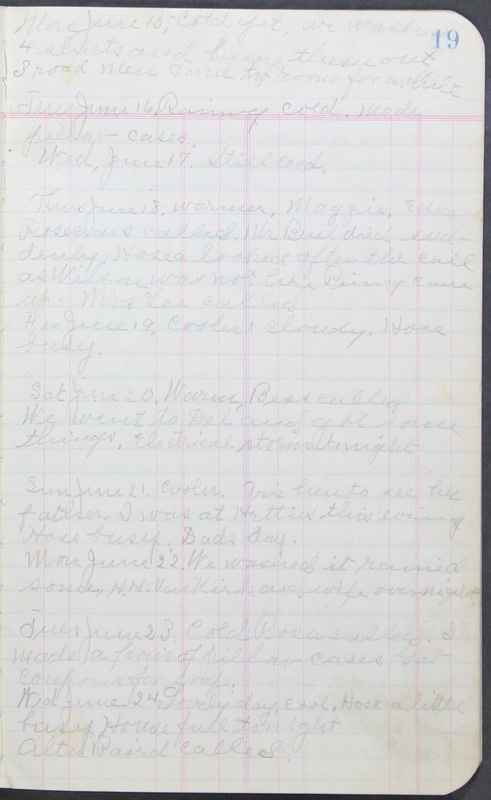 19
Mon June 15, Cold yet, we washed
4 sheets and hung them out
3 road men came to room for awhile
Tues June 16, Rainy cold. made
pillow cases.
Wed, June 17. Still cold.
Thurs June 18, warmer, Maggie, Edna
Rosecrans called, Mr died sud-
denly, Hosea looked after the call
as Wilson was not here Pinny came
up. Mrs Lee called
Fri June 19, Cooler & cloudy. Hose
busy.
Sat June 20, Warm, Bess called
We went to Del and got some
things. Electrical storm tonight
Sun June 21. Cooler. here to see his
father. I was at Hetties this evening
Hose busy. Dads Day.
Mon June 22, We washed it rained
some, N.N. Van Kirk and wife overnight
Tues June 23. Cold Rosa called. I
made a pair of pillow cases Got
coupons for soap.
Wed June 24 Lovely day, cool. Hose a little
busy House full tonight
Alta Baird called.